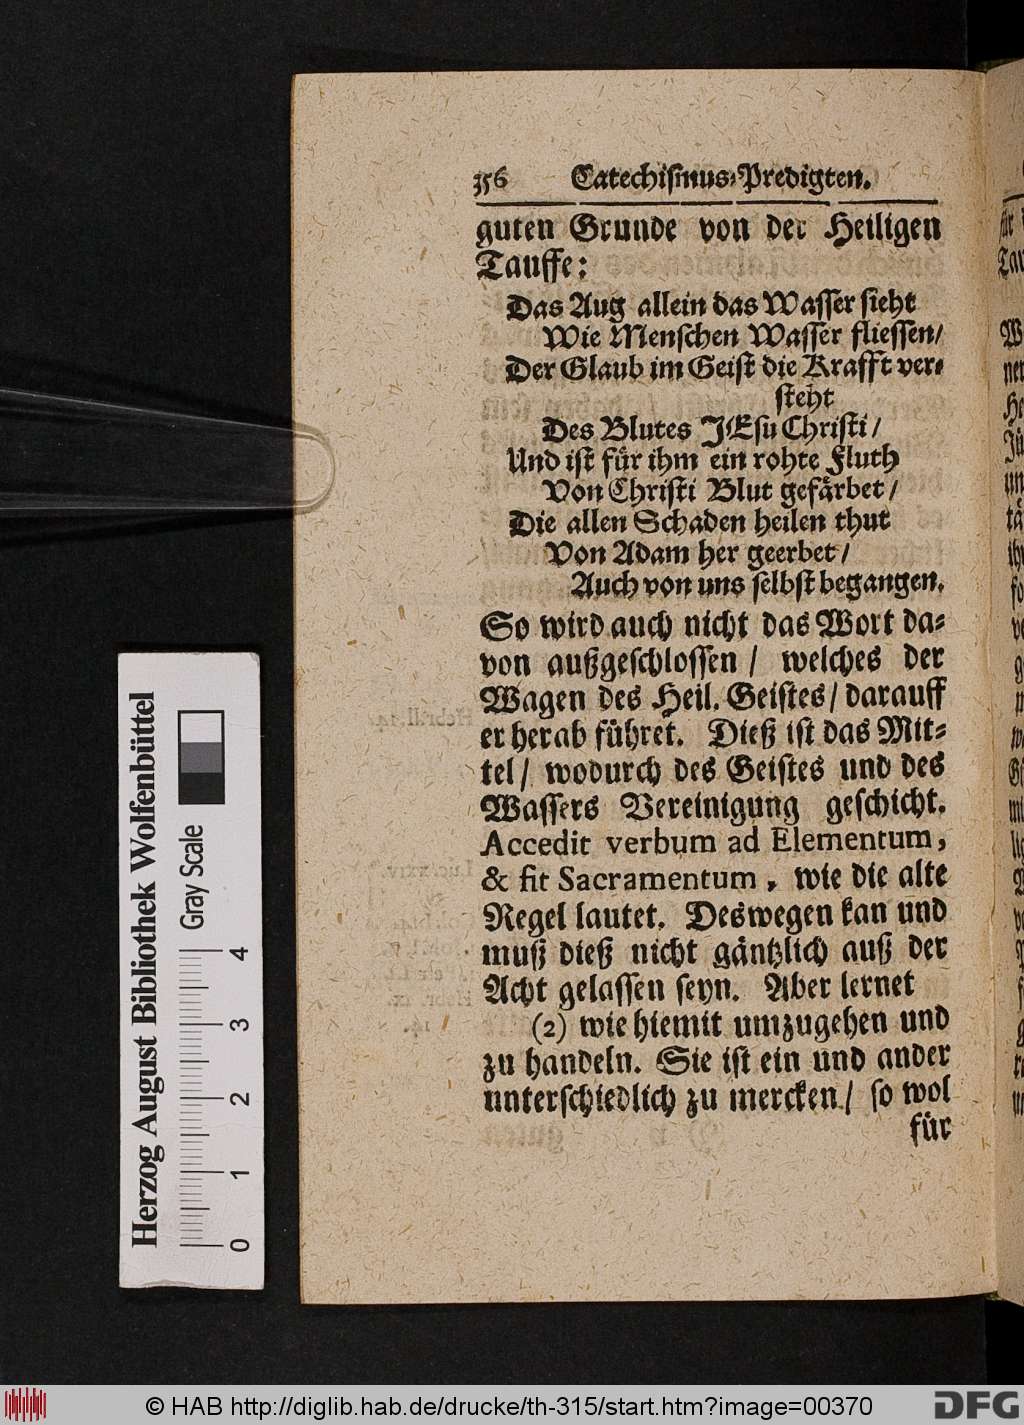 356 Catechismus-Predigten.
guten Grunde von der Heiligen
Tauffe:
Das Aug allein das Wasser sieht
Wie Menschen Wasser fliessen/
Der Glaub im Geist die Krafft ver-
steht
Des Blutes JEsu Christi/
Und ist für ihm ein rohte Fluth
Von Christi Blut gefärbet/
Die allen Schaden heilen thut
Von Adam her geerbet/
Auch von uns selbst begangen.
So wird auch nicht das Wort da-
von außgeschlossen / welches der
Wagen des Heil. Geistes/ darauff
er herab führet. Dieß ist das Mit-
tel/ wodurch des Geistes und des
Wassers Vereinigung geschicht.
Accedit verbum ad Elementum,
& fit Sacramentum, wie die alte
Regel lautet. Deswegen kan und
muß dieß nicht gäntzlich auß der
Acht gelassen seyn. Aber lernet
(2) wie hiemit umzugehen und
zu handeln. Sie ist ein und ander
unterschiedlich zu mercken/ so wol
für
Herzog August Bibliothek Wolfenbüttel
Gray Scale
0 1 2 3 4
© HAB http://diglib.hab.de/drucke/th-315/start.htm?image=00370
DFG